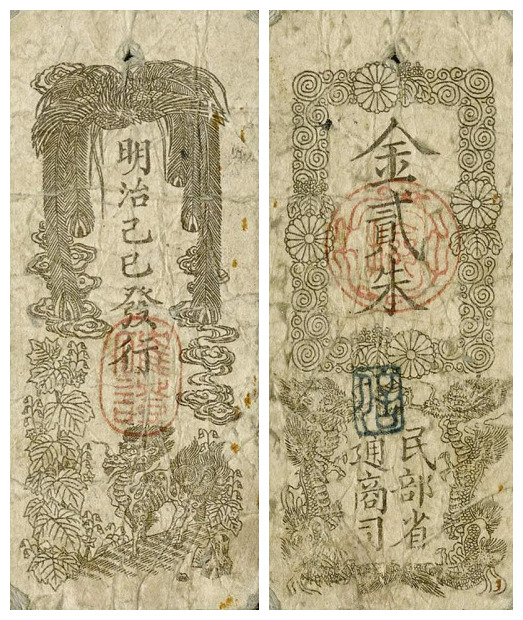 明治己巳發行
金貳朱
民部省
通商司